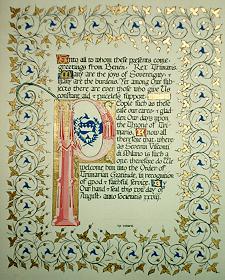 Unto all to whom these presents come
greetings from Rex Trimaris.
Many are the joys of Sovereignty &
many are the burdens. Yet among Our sub-
jects there are ever those who give Us
constant aid & priceless support.
People such as these
ease our cares & glad-
den Our days upon
the Throne of Tri-
maris. Know all
therefore that, where-
as Severin Visconti
di Milano is such a
one, therefore do We
welcome him into the Order of
Trimarian Gratitude, in recognition
of good & faithful service. By
Our hand & seal this day of
August, anno Societatis